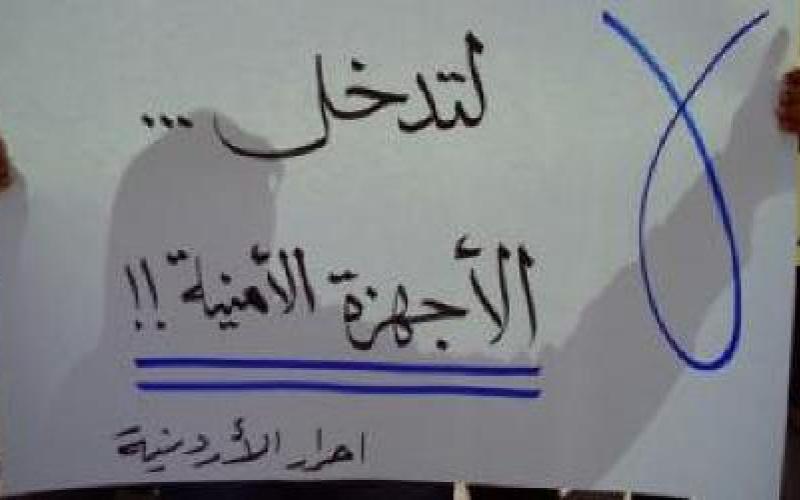 لا
لتدخل ...
الأجهزة الأمنية !!
احرار الأردنية